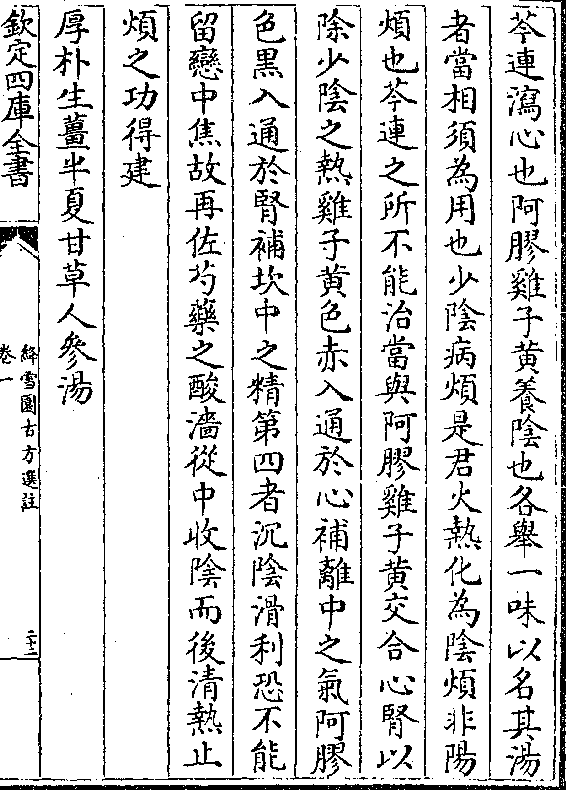 芩連瀉心也阿膠雞子黃養陰也各舉一味以名其湯
者當相須為用也少陰病煩是君火熱化為陰煩非陽
煩也芩連之所不能治當與阿膠雞子黃交合心腎以
除少陰之熱雞子黃色赤入通於心補離中之氣阿膠
色黑入通於腎補坎中之精第四者沉陰滑利恐不能
留戀中焦故再佐芍藥之酸濇從中收陰而後清熱止
煩之功得建
厚朴生薑半夏甘草人參湯
欽定四庫全書
絳雪園古方選註
卷一
二十三